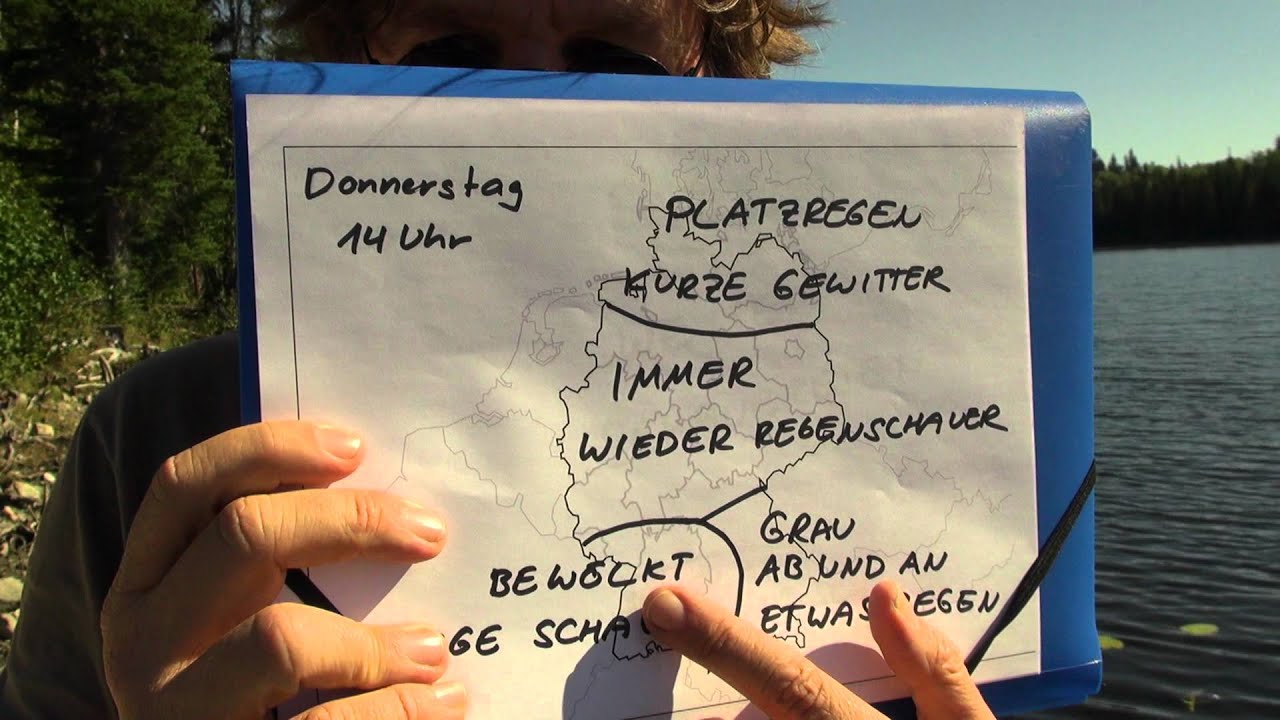 Donnerstag
14 Uhr
PLATZREGEN
KURZE GEWITTER
IMMER
WIEDER REGENSCHAUER
GRAU
AB UND AN
BEWÖLKT